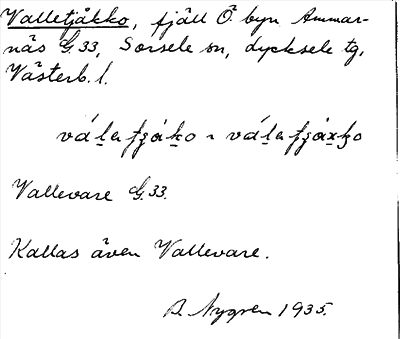 Valletjåkko, fjäll Ö byn Ammar-
näs G. 33, Sorsele sn, Lycksele tg,
Västerb. l.
Vallevare G. 33.
Kallas även Vallevare.
B. Nygren 1935.